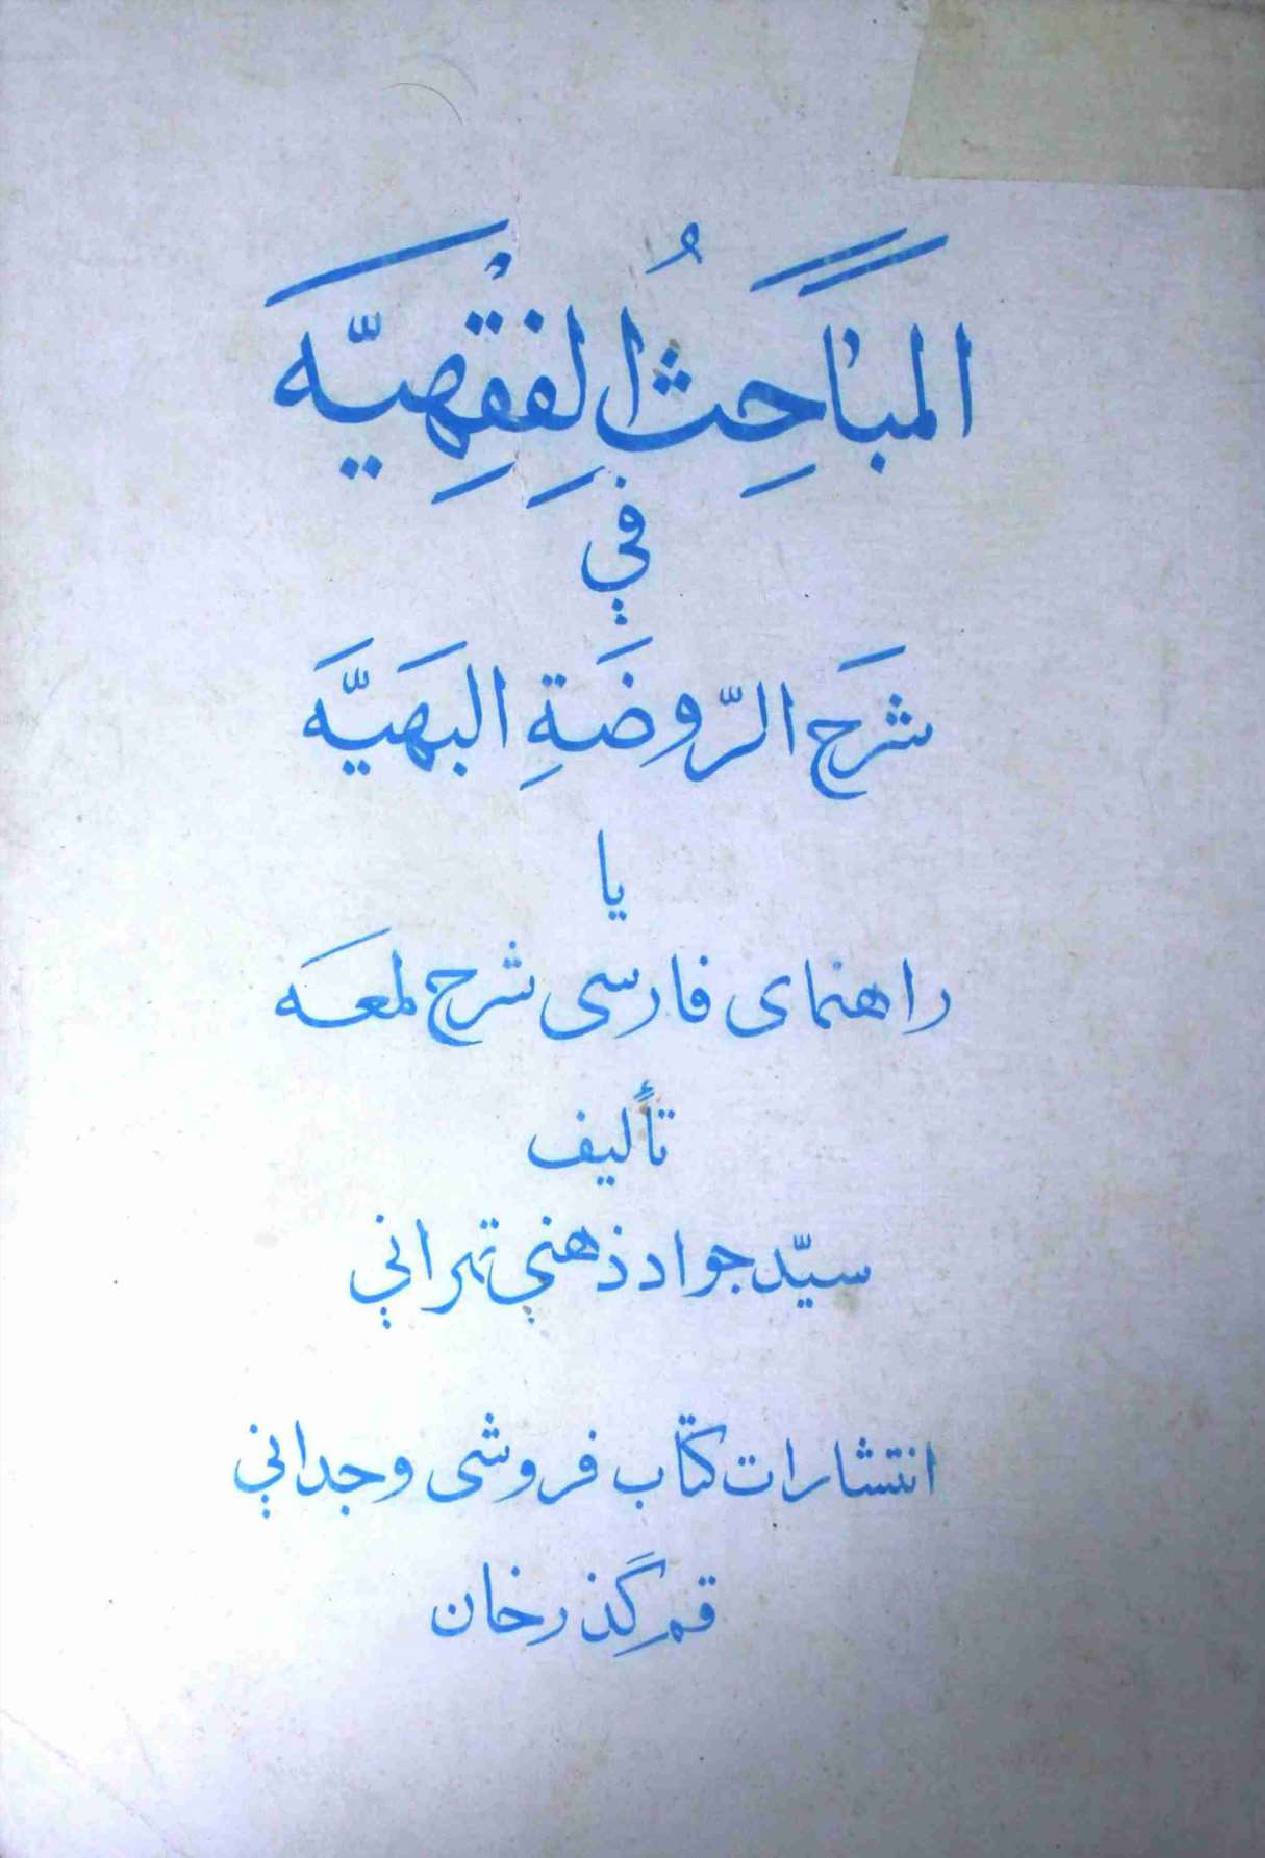 المَبَاحِثُ الفِقْهِیَّه
في
شَرح الرّوضَةِ البَهَیَّه
یا
راهنمای فارسی شرح لمعَه
تألیف
سیّد جواد ذهني تهراني
انتشارات کتاب فروشی وجداني
قم گذرخان